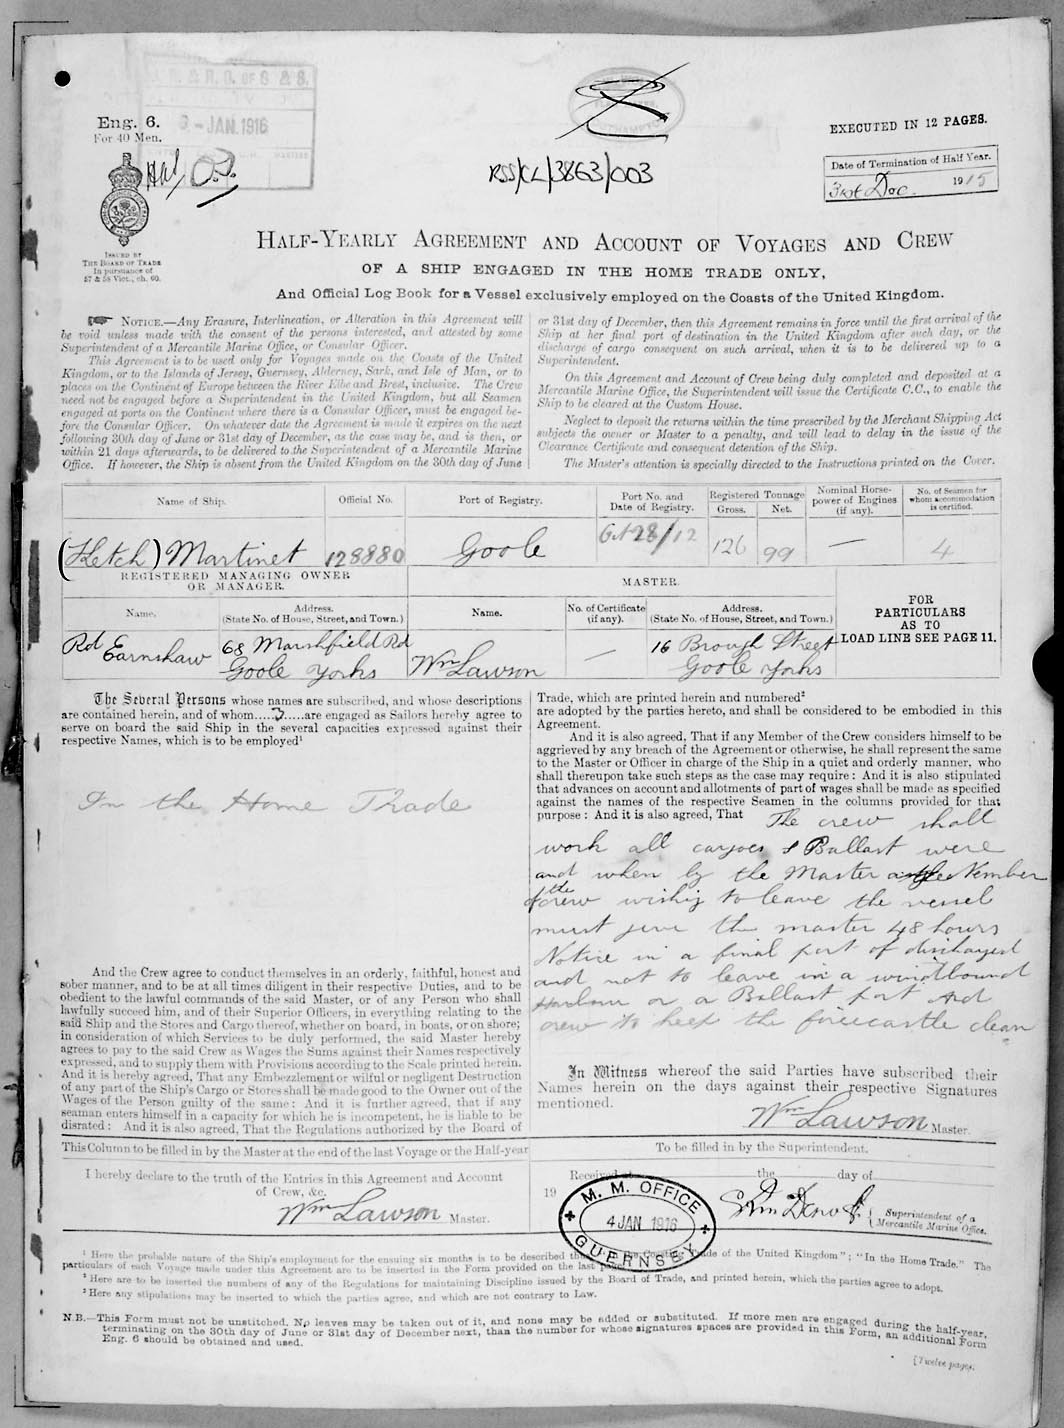 R. & R. O. OF S & S.
6 - JAN. 1916
Eng. 6.
For 40 Men.
RSS/CL/3863/003
EXECUTED IN 12 PAGES.
Date of Termination of Half Year.
31st Dec. 1915
ISSUED BY
THE BOARD OF TRADE
In pursuance of
57 & 58 Vict., ch. 60.
HALF-YEARLY AGREEMENT AND ACCOUNT OF VOYAGES AND CREW
OF A SHIP ENGAGED IN THE HOME TRADE ONLY,
And Official Log Book for a Vessel exclusively employed on the Coasts of the United Kingdom.
NOTICE.—Any Erasure, Interlineation, or Alteration in this Agreement will
be void unless made with the consent of the persons interested, and attested by some
Superintendent of a Mercantile Marine Office, or Consular Officer.
This Agreement is to be used only for Voyages made on the Coasts of the United
Kingdom, or to the Islands of Jersey, Guernsey, Alderney, Sark, and Isle of Man, or to
places on the Continent of Europe between the River Elbe and Brest, inclusive. The Crew
need not be engaged before a Superintendent in the United Kingdom, but all Seamen
engaged at ports on the Continent where there is a Consular Officer, must be engaged be-
fore the Consular Officer. On whatever date the Agreement is made it expires on the next
following 30th day of June or 31st day of December, as the case may be, and is then, or
within 21 days afterwards, to be delivered to the Superintendent of a Mercantile Marine
Office. If however, the Ship is absent from the United Kingdom on the 30th day of June
or 31st day of December, then this Agreement remains in force until the first arrival of the
Ship at her final port of destination in the United Kingdom after such day, or the
discharge of cargo consequent on such arrival, when it is to be delivered up to a
Superintendent.
On this Agreement and Account of Crew being duly completed and deposited at a
Mercantile Marine Office, the Superintendent will issue the Certificate C.C., to enable the
Ship to be cleared at the Custom House.
Neglect to deposit the returns within the time prescribed by the Merchant Shipping Act
subjects the owner or Master to a penalty, and will lead to delay in the issue of the
Clearance Certificate and consequent detention of the Ship.
The Master's attention is specially directed to the Instructions printed on the Cover.
Name of Ship.
Official No.
Port of Registry.
Port No. and
Date of Registry.
Registered Tonnage
Gross. Net.
Nominal Horse-
power of Engines
(if any).
No. of Seamen for
whom accommodation
is certified.
(Ketch) Martinet 128880 Goole 28/12 126 99 — 4
REGISTERED MANAGING OWNER
OR MANAGER.
MASTER.
Name.
Address.
(State No. of House, Street, and Town.)
Name.
No. of Certificate
(if any).
Address.
(State No. of House, Street, and Town.)
FOR
PARTICULARS
AS TO
LOAD LINE SEE PAGE 11.
Rd Earnshaw
68 Marshfield Rd
Goole Yorks
Wm Lawson
—
16 Brough Street
Goole Yorks
The Several Persons whose names are subscribed, and whose descriptions
are contained herein, and of whom.....3.....are engaged as Sailors hereby agree to
serve on board the said Ship in the several capacities expressed against their
respective Names, which is to be employed¹
In the Home Trade
And the Crew agree to conduct themselves in an orderly, faithful, honest and
sober manner, and to be at all times diligent in their respective Duties, and to be
obedient to the lawful commands of the said Master, or of any Person who shall
lawfully succeed him, and of their Superior Officers, in everything relating to the
said Ship and the Stores and Cargo thereof, whether on board, in boats, or on shore;
in consideration of which Services to be duly performed, the said Master hereby
agrees to pay to the said Crew as Wages the Sums against their Names respectively
expressed, and to supply them with Provisions according to the Scale printed herein.
And it is hereby agreed, That any Embezzlement or wilful or negligent Destruction
of any part of the Ship's Cargo or Stores shall be made good to the Owner out of the
Wages of the Person guilty of the same: And it is further agreed, that if any
seaman enters himself in a capacity for which he is incompetent, he is liable to be
disrated: And it is also agreed, That the Regulations authorized by the Board of
Trade, which are printed herein and numbered²
are adopted by the parties hereto, and shall be considered to be embodied in this
Agreement.
And it is also agreed, That if any Member of the Crew considers himself to be
aggrieved by any breach of the Agreement or otherwise, he shall represent the same
to the Master or Officer in charge of the Ship in a quiet and orderly manner, who
shall thereupon take such steps as the case may require: And it is also stipulated
that advances on account and allotments of part of wages shall be made as specified
against the names of the respective Seamen in the columns provided for that
purpose: And it is also agreed, That The crew shall
work all cargoes & Ballast were
and when by the Master Member
of the crew wishing to leave the vessel
must give the master 48 hours
Notice in a final port of discharged
and not to leave in a windbound
Harbour or a Ballast port And
crew to keep the forecastle clean
In Witness whereof the said Parties have subscribed their
Names herein on the days against their respective Signatures
mentioned.
Wm Lawson Master.
This Column to be filled in by the Master at the end of the last Voyage or the Half-year
I hereby declare to the truth of the Entries in this Agreement and Account
of Crew, &c.
Wm Lawson Master.
To be filled in by the Superintendent.
Received at the day of
19
M. M. OFFICE
4 JAN 1916
GUERNSEY
Superintendent of a
Mercantile Marine Office.
¹ Here the probable nature of the Ship's employment for the ensuing six months is to be described Trade of the United Kingdom"; "In the Home Trade." The
particulars of each Voyage made under this Agreement are to be inserted in the Form provided on the last page.
² Here are to be inserted the numbers of any of the Regulations for maintaining Discipline issued by the Board of Trade, and printed herein, which the parties agree to adopt.
³ Here any stipulations may be inserted to which the parties agree, and which are not contrary to Law.
N.B.—This Form must not be unstitched. No leaves may be taken out of it, and none may be added or substituted. If more men are engaged during the half-year,
terminating on the 30th day of June or 31st day of December next, than the number for whose signatures spaces are provided in this Form, an additional Form
Eng. 6 should be obtained and used.
[Twelve pages.